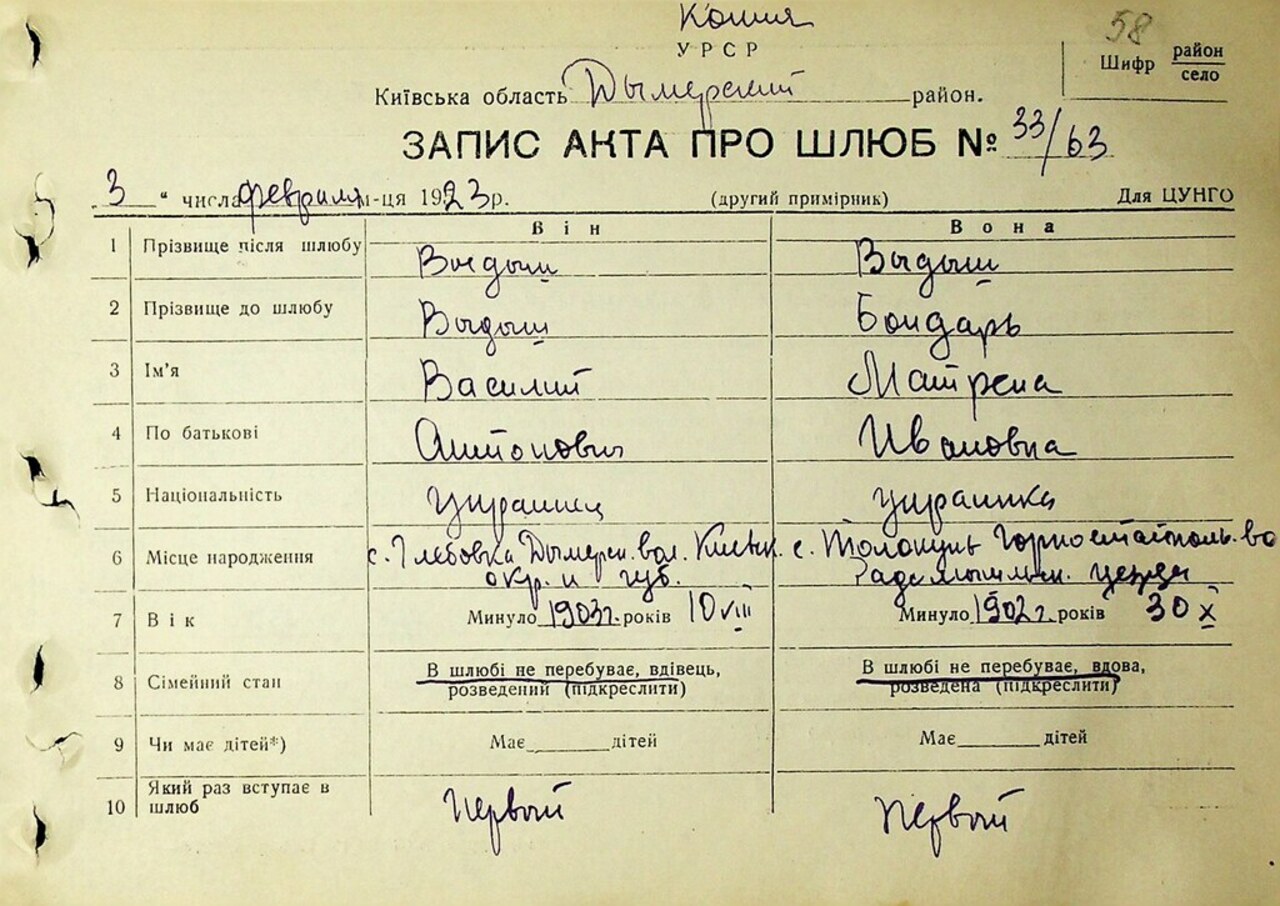 Копия
58
УРСР
Шифр район
село
Київська область Дымерский район.
ЗАПИС АКТА ПРО ШЛЮБ № 33/63
3 " числа февраля м-ця 1923 р. (другий примірник) Для ЦУНГО
Він Вона
1 Прізвище після шлюбу Выдыш Выдыш
2 Прізвище до шлюбу Выдыш Бондарь
3 Ім'я Василий Матрена
4 По батькові Антонович Ивановна
5 Національність украинец украинка
6 Місце народження с. Глебовка Дымерск. вол. Киевск. с. Толокунь Горностайполь. во
окр. и губ. Радомышльск. уезда
7 Вік Минуло 1903г. років 10 VIII Минуло 1902г. років 30 X
8 Сімейний стан В шлюбі не перебуває, вдівець, В шлюбі не перебуває, вдова,
розведений (підкреслити) розведена (підкреслити)
9 Чи має дітей*) Має______дітей Має______дітей
10 Який раз вступає в
шлюб Первый Первый